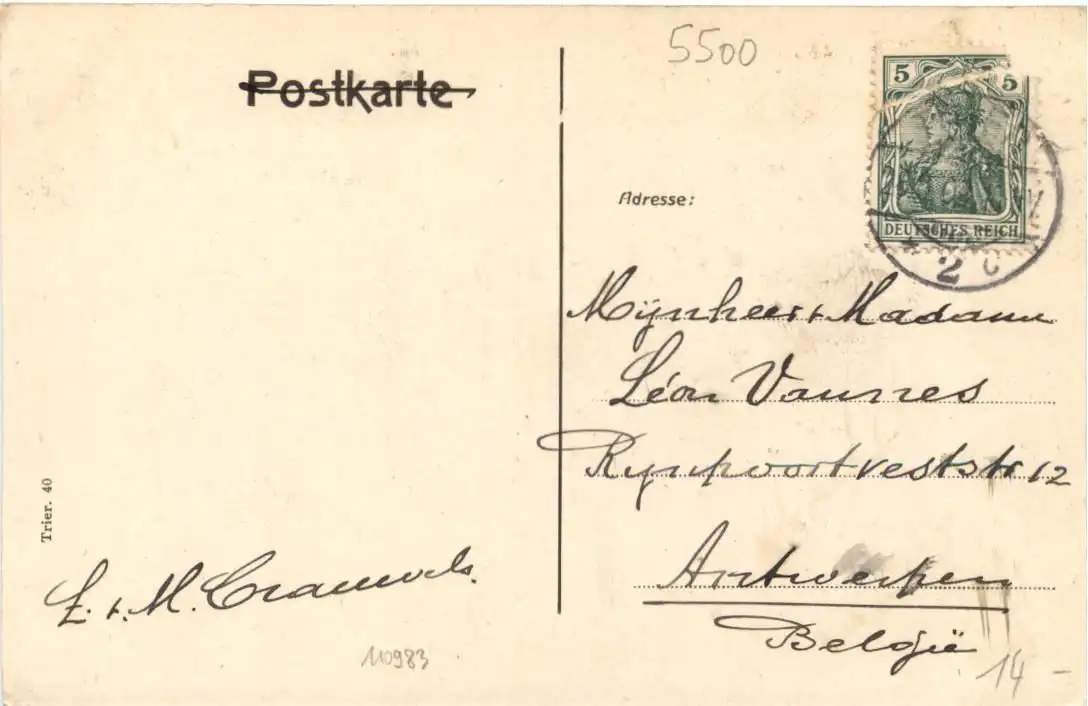 Postkarte
5500
5 5
DEUTSCHES REICH
2 c
Adresse:
Mijnheer & Madame
Léon Vannes
Rynpoortveststr 12
Antwerpen
België
Trier. 40
E. & M. Crauwels.
110983
14 -